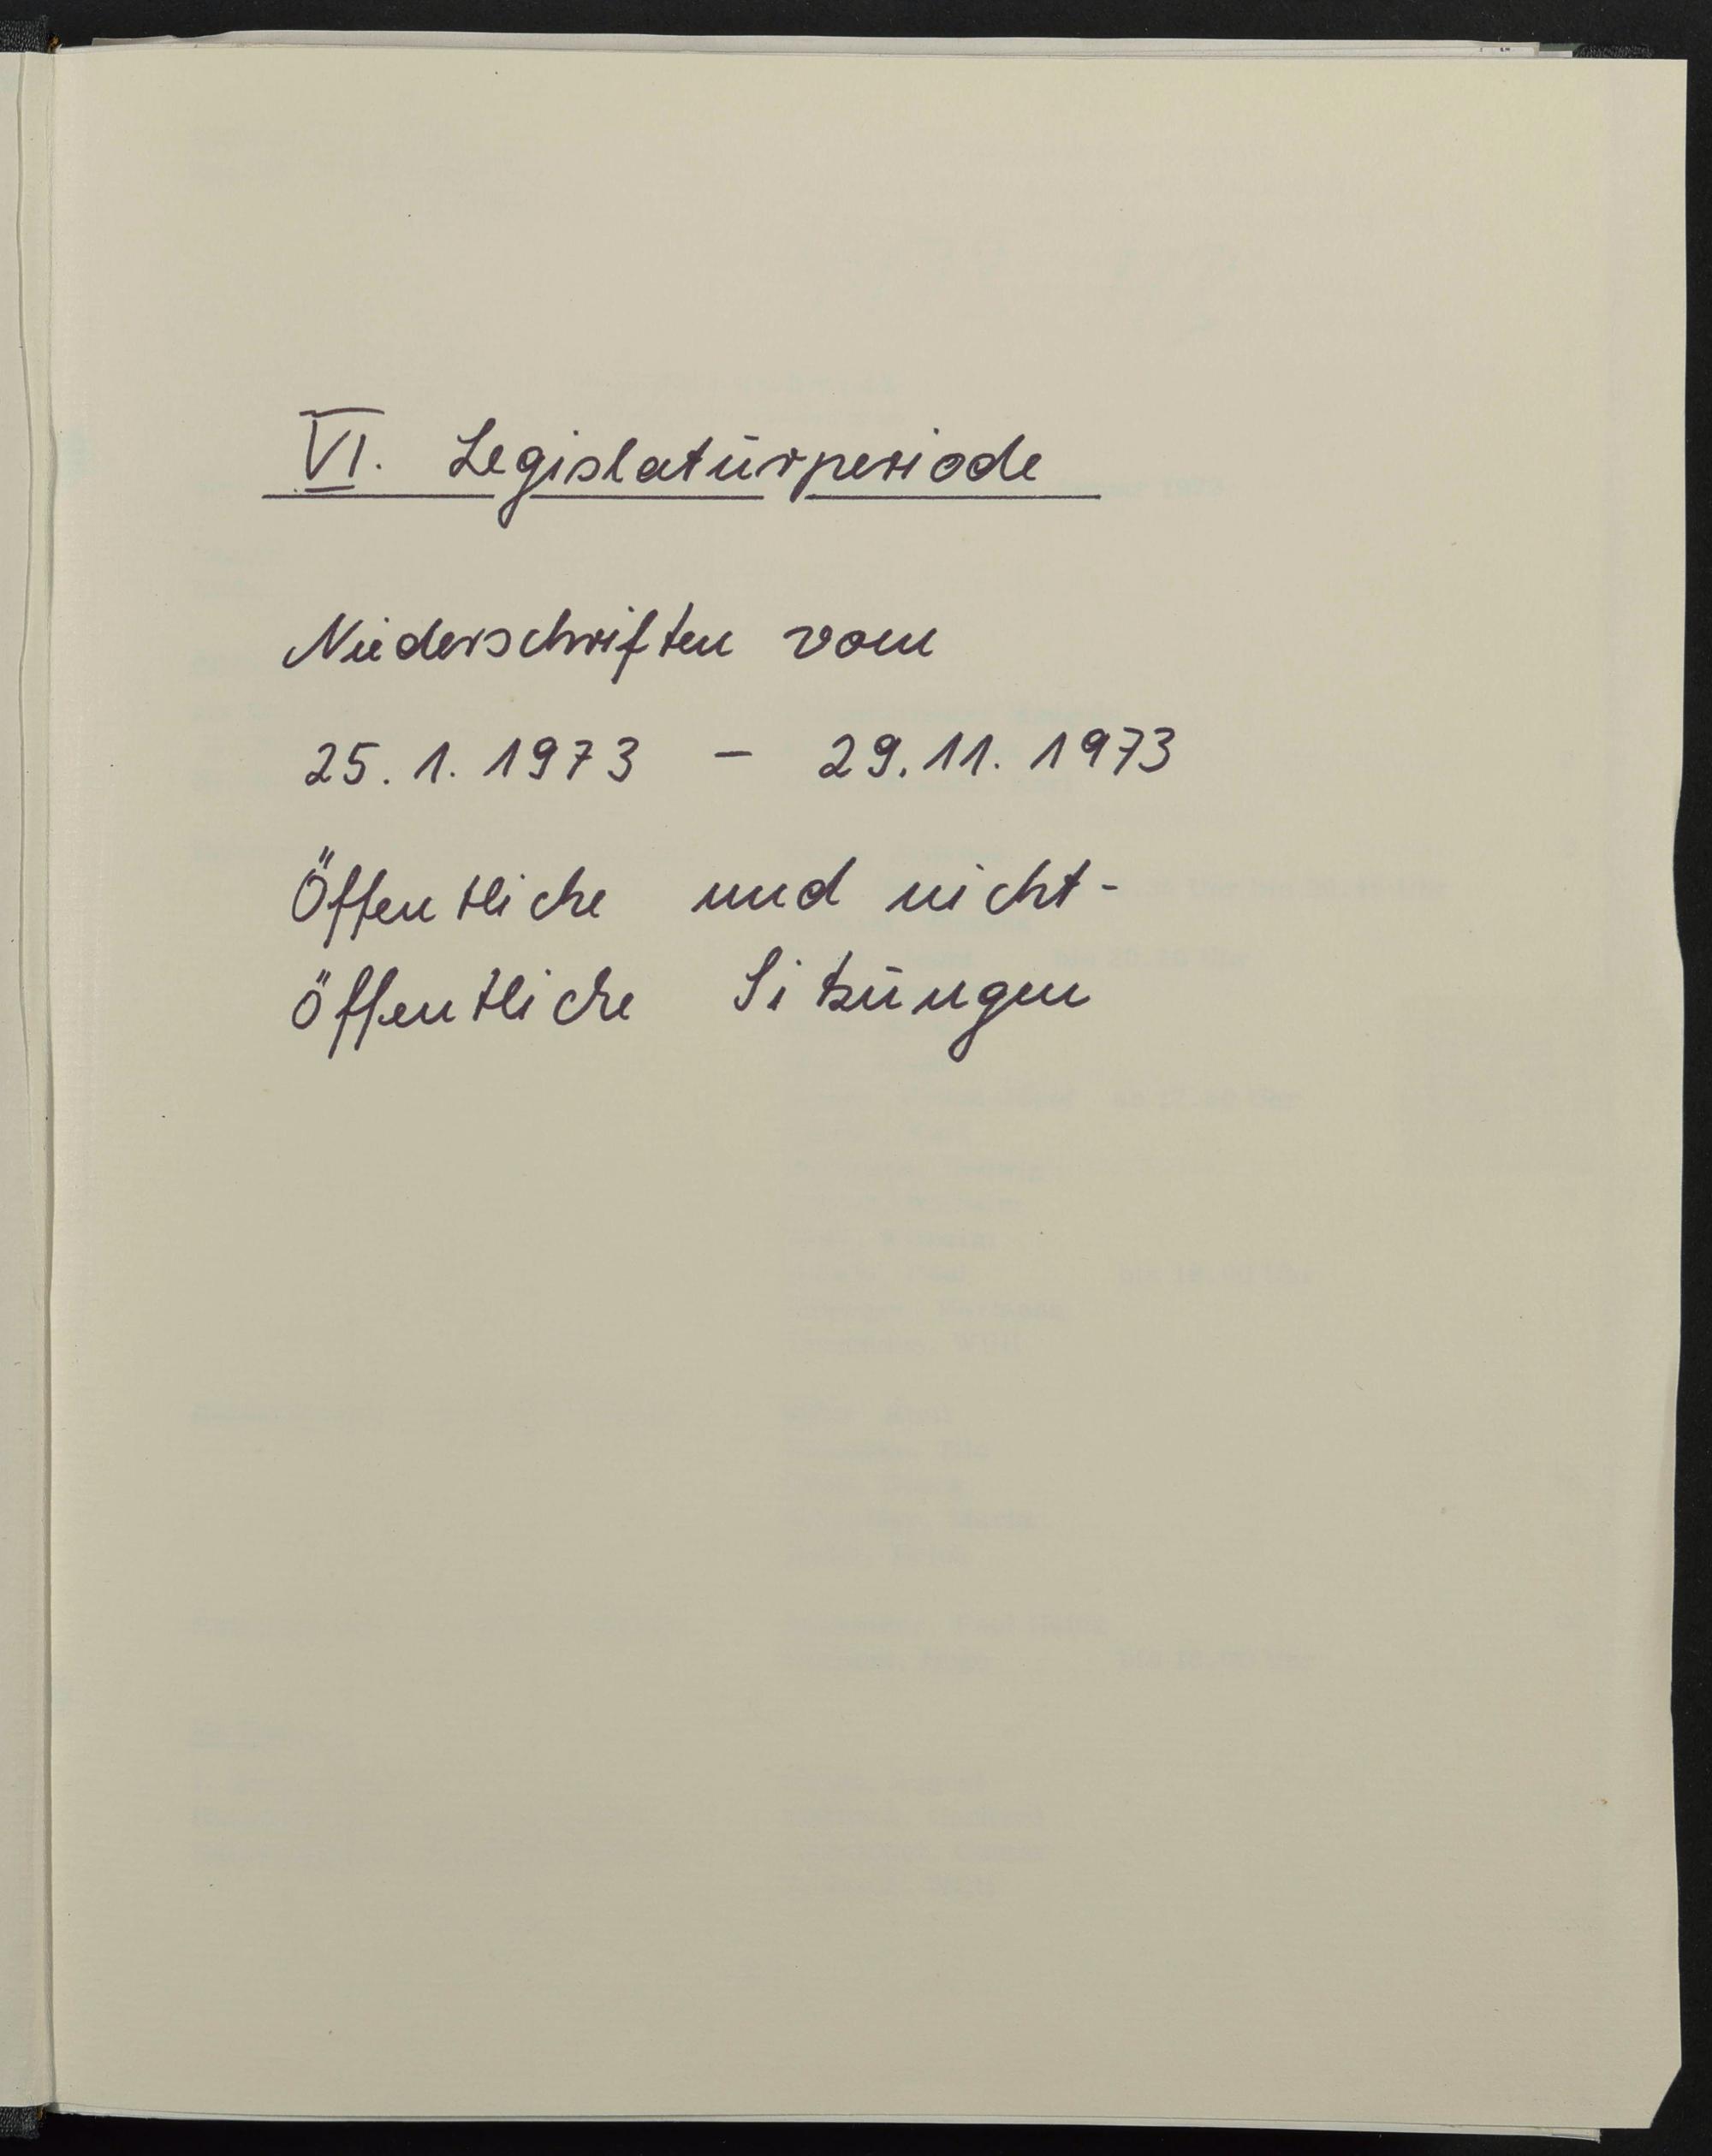 VI. Legislaturperiode
Niederschriften vom
25. 1. 1973 - 29. 11. 1973
Öffentliche und nicht-
öffentliche Sitzungen